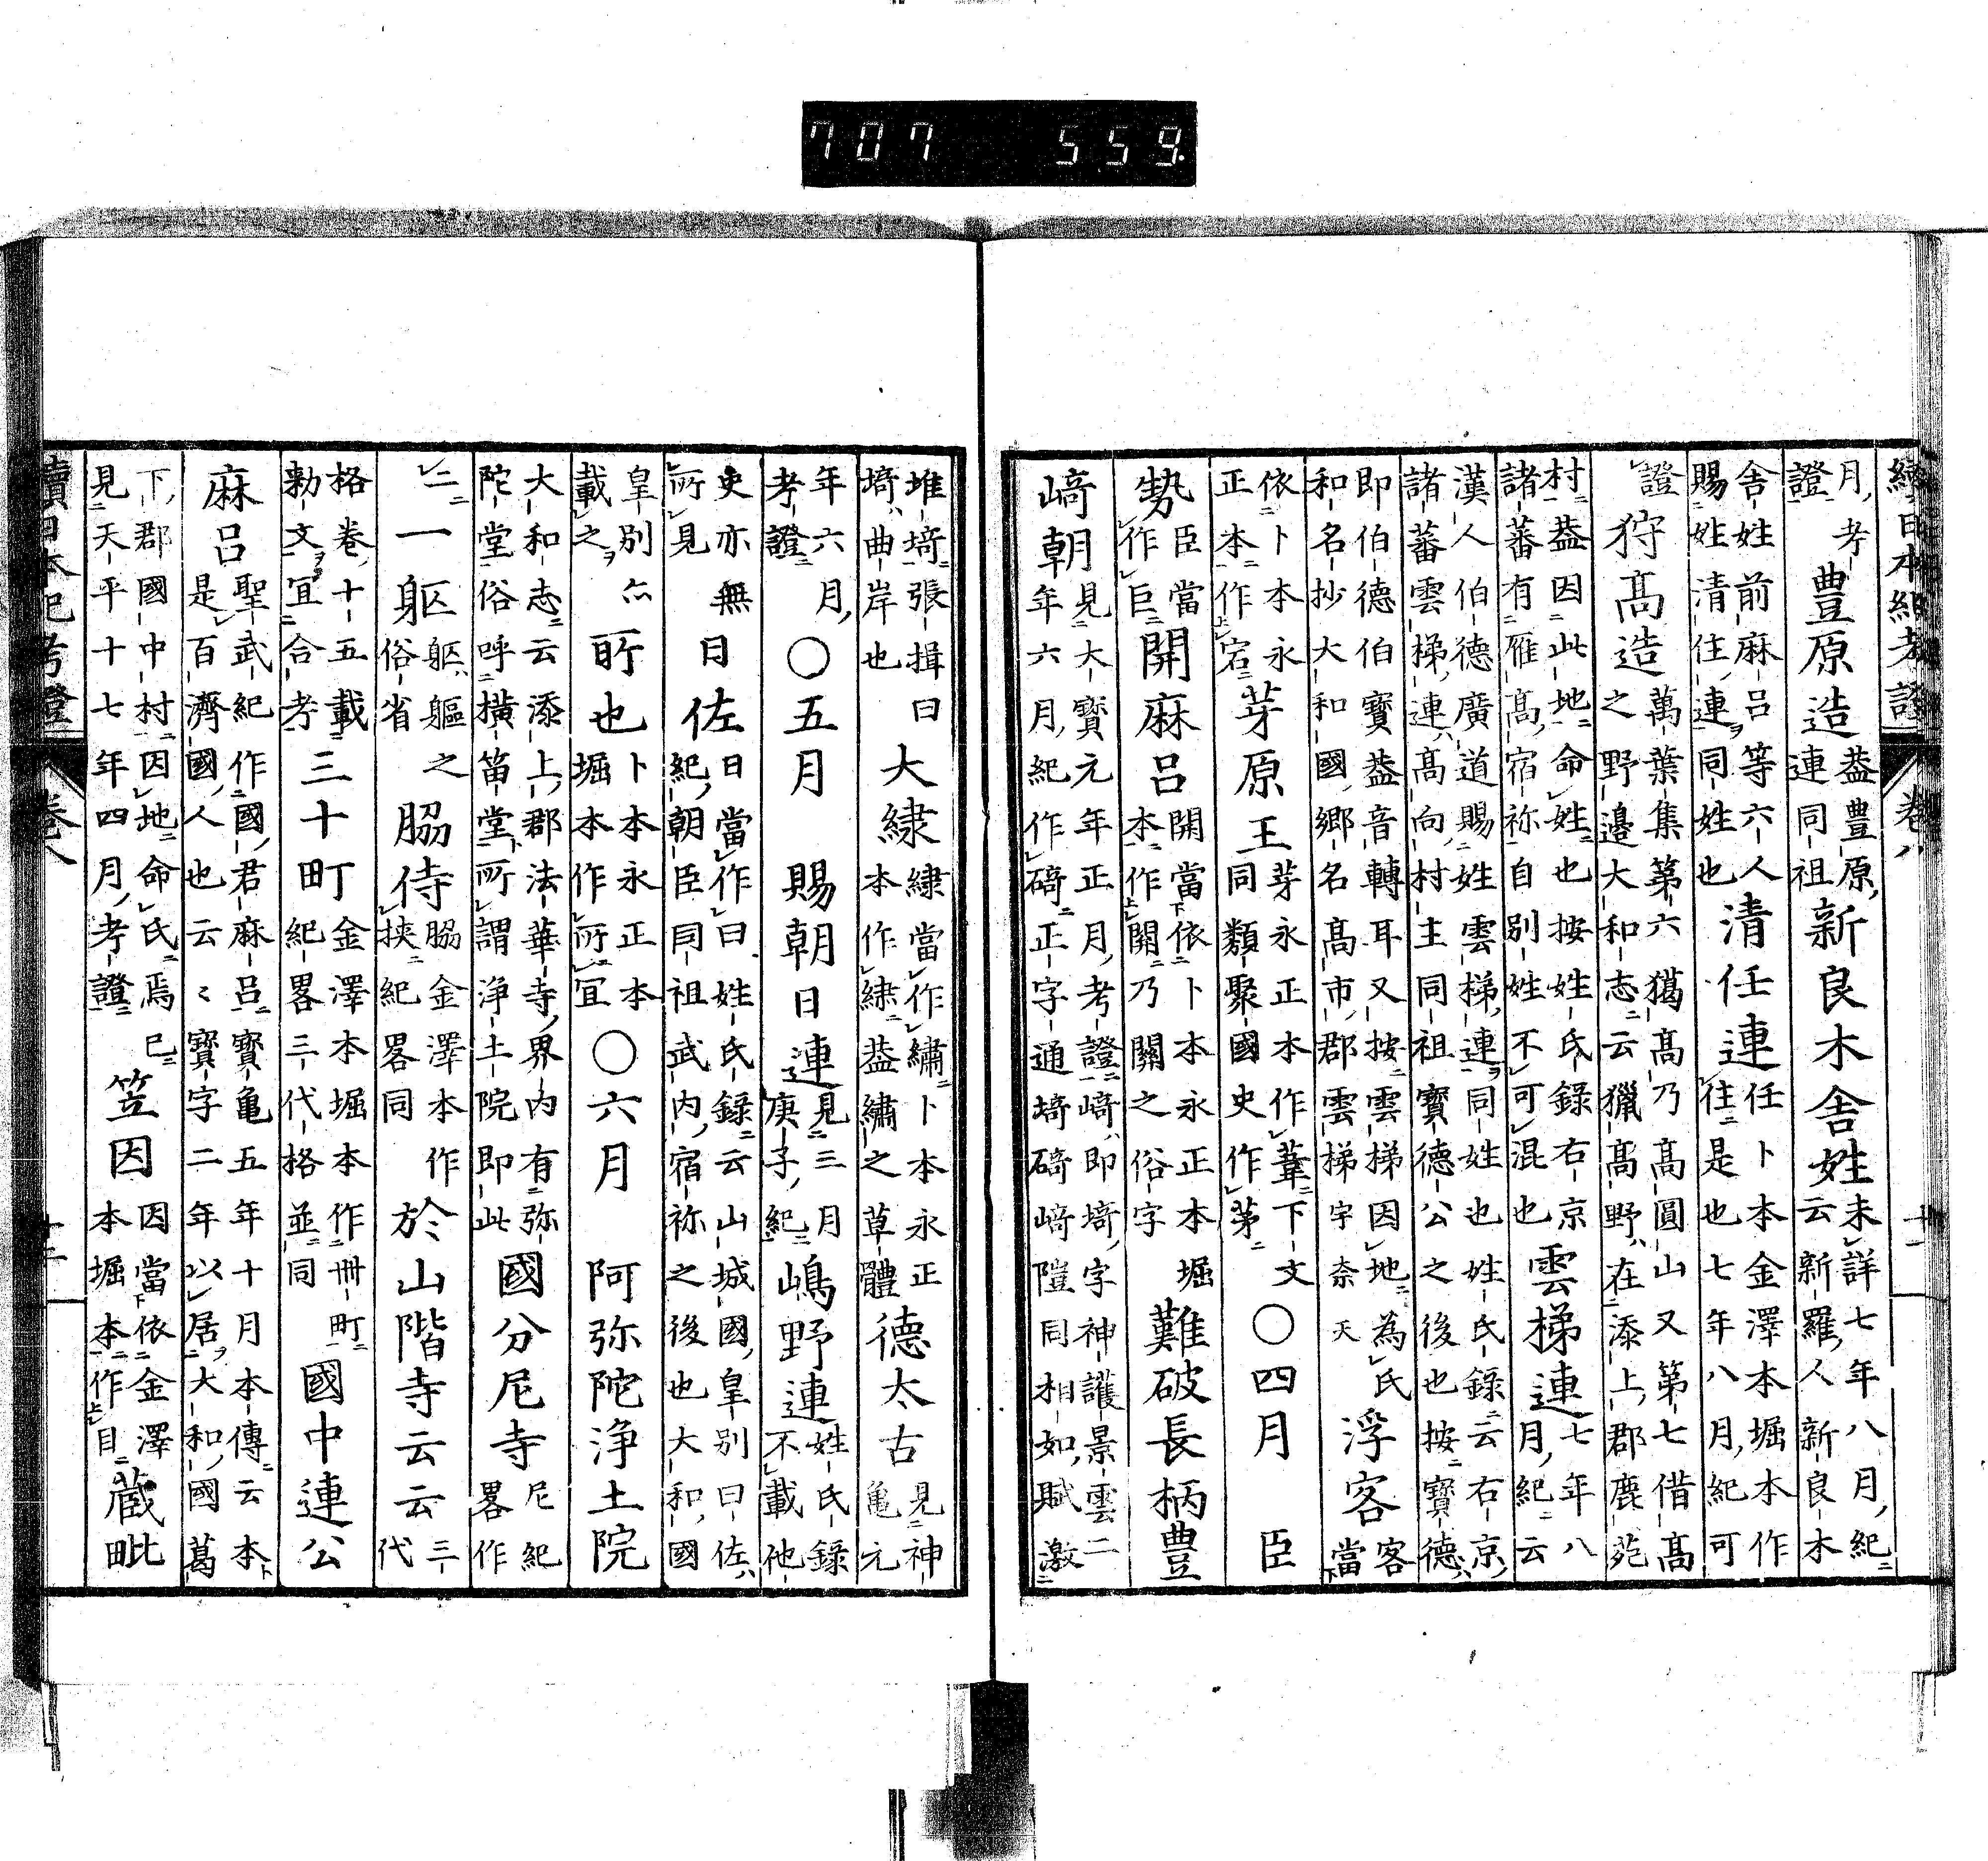 707 559
續日本紀考證 卷八 十一
月考
證
豊原造
蓋豊原
連同祖
新良木舍姓
未詳七年八月紀
云新羅人新良木
舍姓前麻呂等六人
賜姓清住連同姓也
清任連
任卜本金澤本堀本作
住是也七年八月紀可
證
狩髙造
萬葉集第六獦髙乃髙圓山又第七借髙
之野邊大和志云獵髙野在添上郡鹿苑
村蓋因此地命姓也按姓氏録右京
諸蕃有雁髙宿祢自別姓不可混也
雲梯連
七年八
月紀云
漢人伯德廣道賜姓雲梯連同姓也姓氏録云右京
諸蕃雲梯連髙向村主同祖寶德公之後也按寶德
即伯德伯寶蓋音轉耳又按雲梯因地為氏
和名抄大和國鄉名髙市郡雲梯宇奈天
浮客
客
當
依卜本永
正本作宕
芽原王
芽永正本作葦下文
同類聚國史作茅
○四月 臣
勢
臣當
作巨
開麻呂
開當依卜本永正本堀
本作關乃關之俗字
難破長柄豊
﨑朝
見大寶元年正月考證﨑即埼字神護景雲二
年六月紀作碕正字通埼碕﨑隑同相如賦激
堆埼張揖曰
埼曲岸也
大
當作繡卜本永正
本作 蓋繡之草體
德太古
見神
亀元
年六月
考證
○五月 賜朝日連
見三月
庚子紀
嶋野連
姓氏録
不載他
史亦無
所見
日佐
日當作曰姓氏録云山城國皇別曰佐
紀朝臣同祖武内宿祢之後也大和國
皇別亦
載之
所也
卜本永正本
堀本作所宜
○六月 阿弥陀浄土院
大和志云添上郡法華寺界内有弥
陀堂俗呼横笛堂所謂浄土院即此
國分尼寺
尼紀
畧作
二
一躯
躯軀之
俗省
脇侍
脇金澤本作
挾紀畧同
於山階寺云云
三
代
格卷十五載
勅文宜合考
三十町
金澤本堀本作卌町
紀畧三代格並同
國中連公
麻呂
聖武紀作國君麻呂寶亀五年十月本傳云本
是百濟國人也云々寶字二年以居大和國葛
下郡國中村因地命氏焉已
見天平十七年四月考證
笠因
因當依金澤
本堀本作目
蔵毗
續日本紀考證 卷八 十二